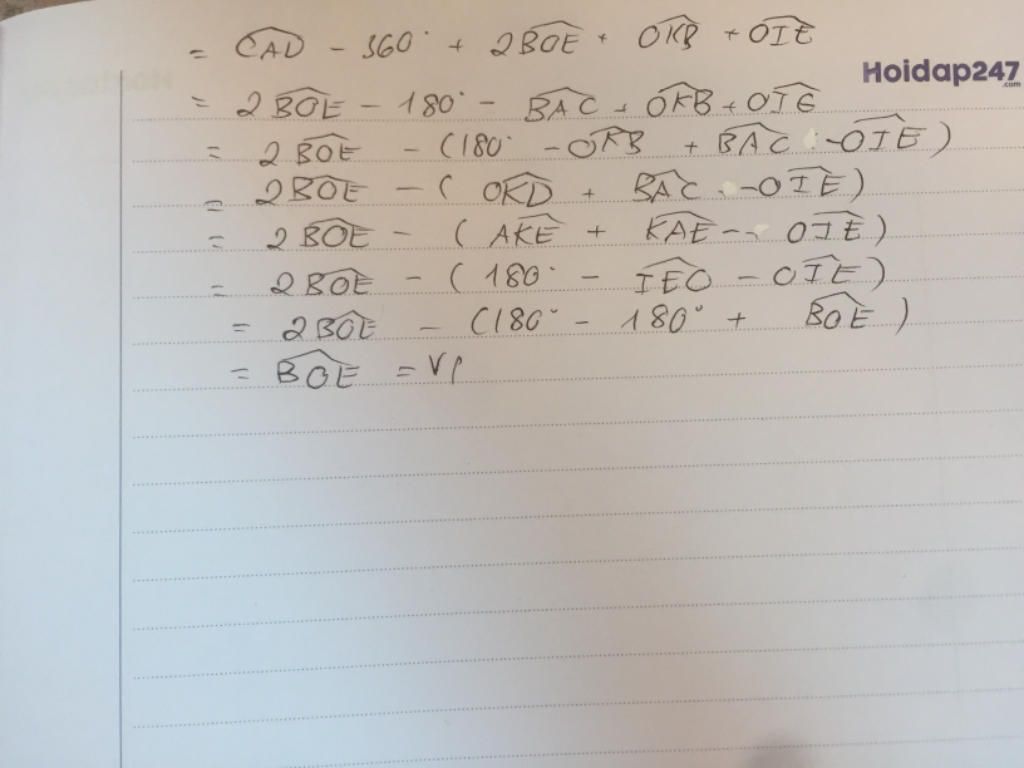 = \widehat{CAD} - 360° + 2\widehat{BOE} + \widehat{OKB} + \widehat{OIE}
Hoidap247
.com
= 2\widehat{BOE} - 180° - \widehat{BAC} + \widehat{OKB} + \widehat{OIE}
= 2\widehat{BOE} - (180° - \widehat{OKB} + \widehat{BAC} - \widehat{OIE})
= 2\widehat{BOE} - (\widehat{OKD} + \widehat{BAC} - \widehat{OIE})
= 2\widehat{BOE} - (\widehat{AKE} + \widehat{KAE} - \widehat{OIE})
= 2\widehat{BOE} - (180° - \widehat{IEO} - \widehat{OIE})
= 2\widehat{BOE} - (180° - 180° + \widehat{BOE})
= \widehat{BOE} = VP